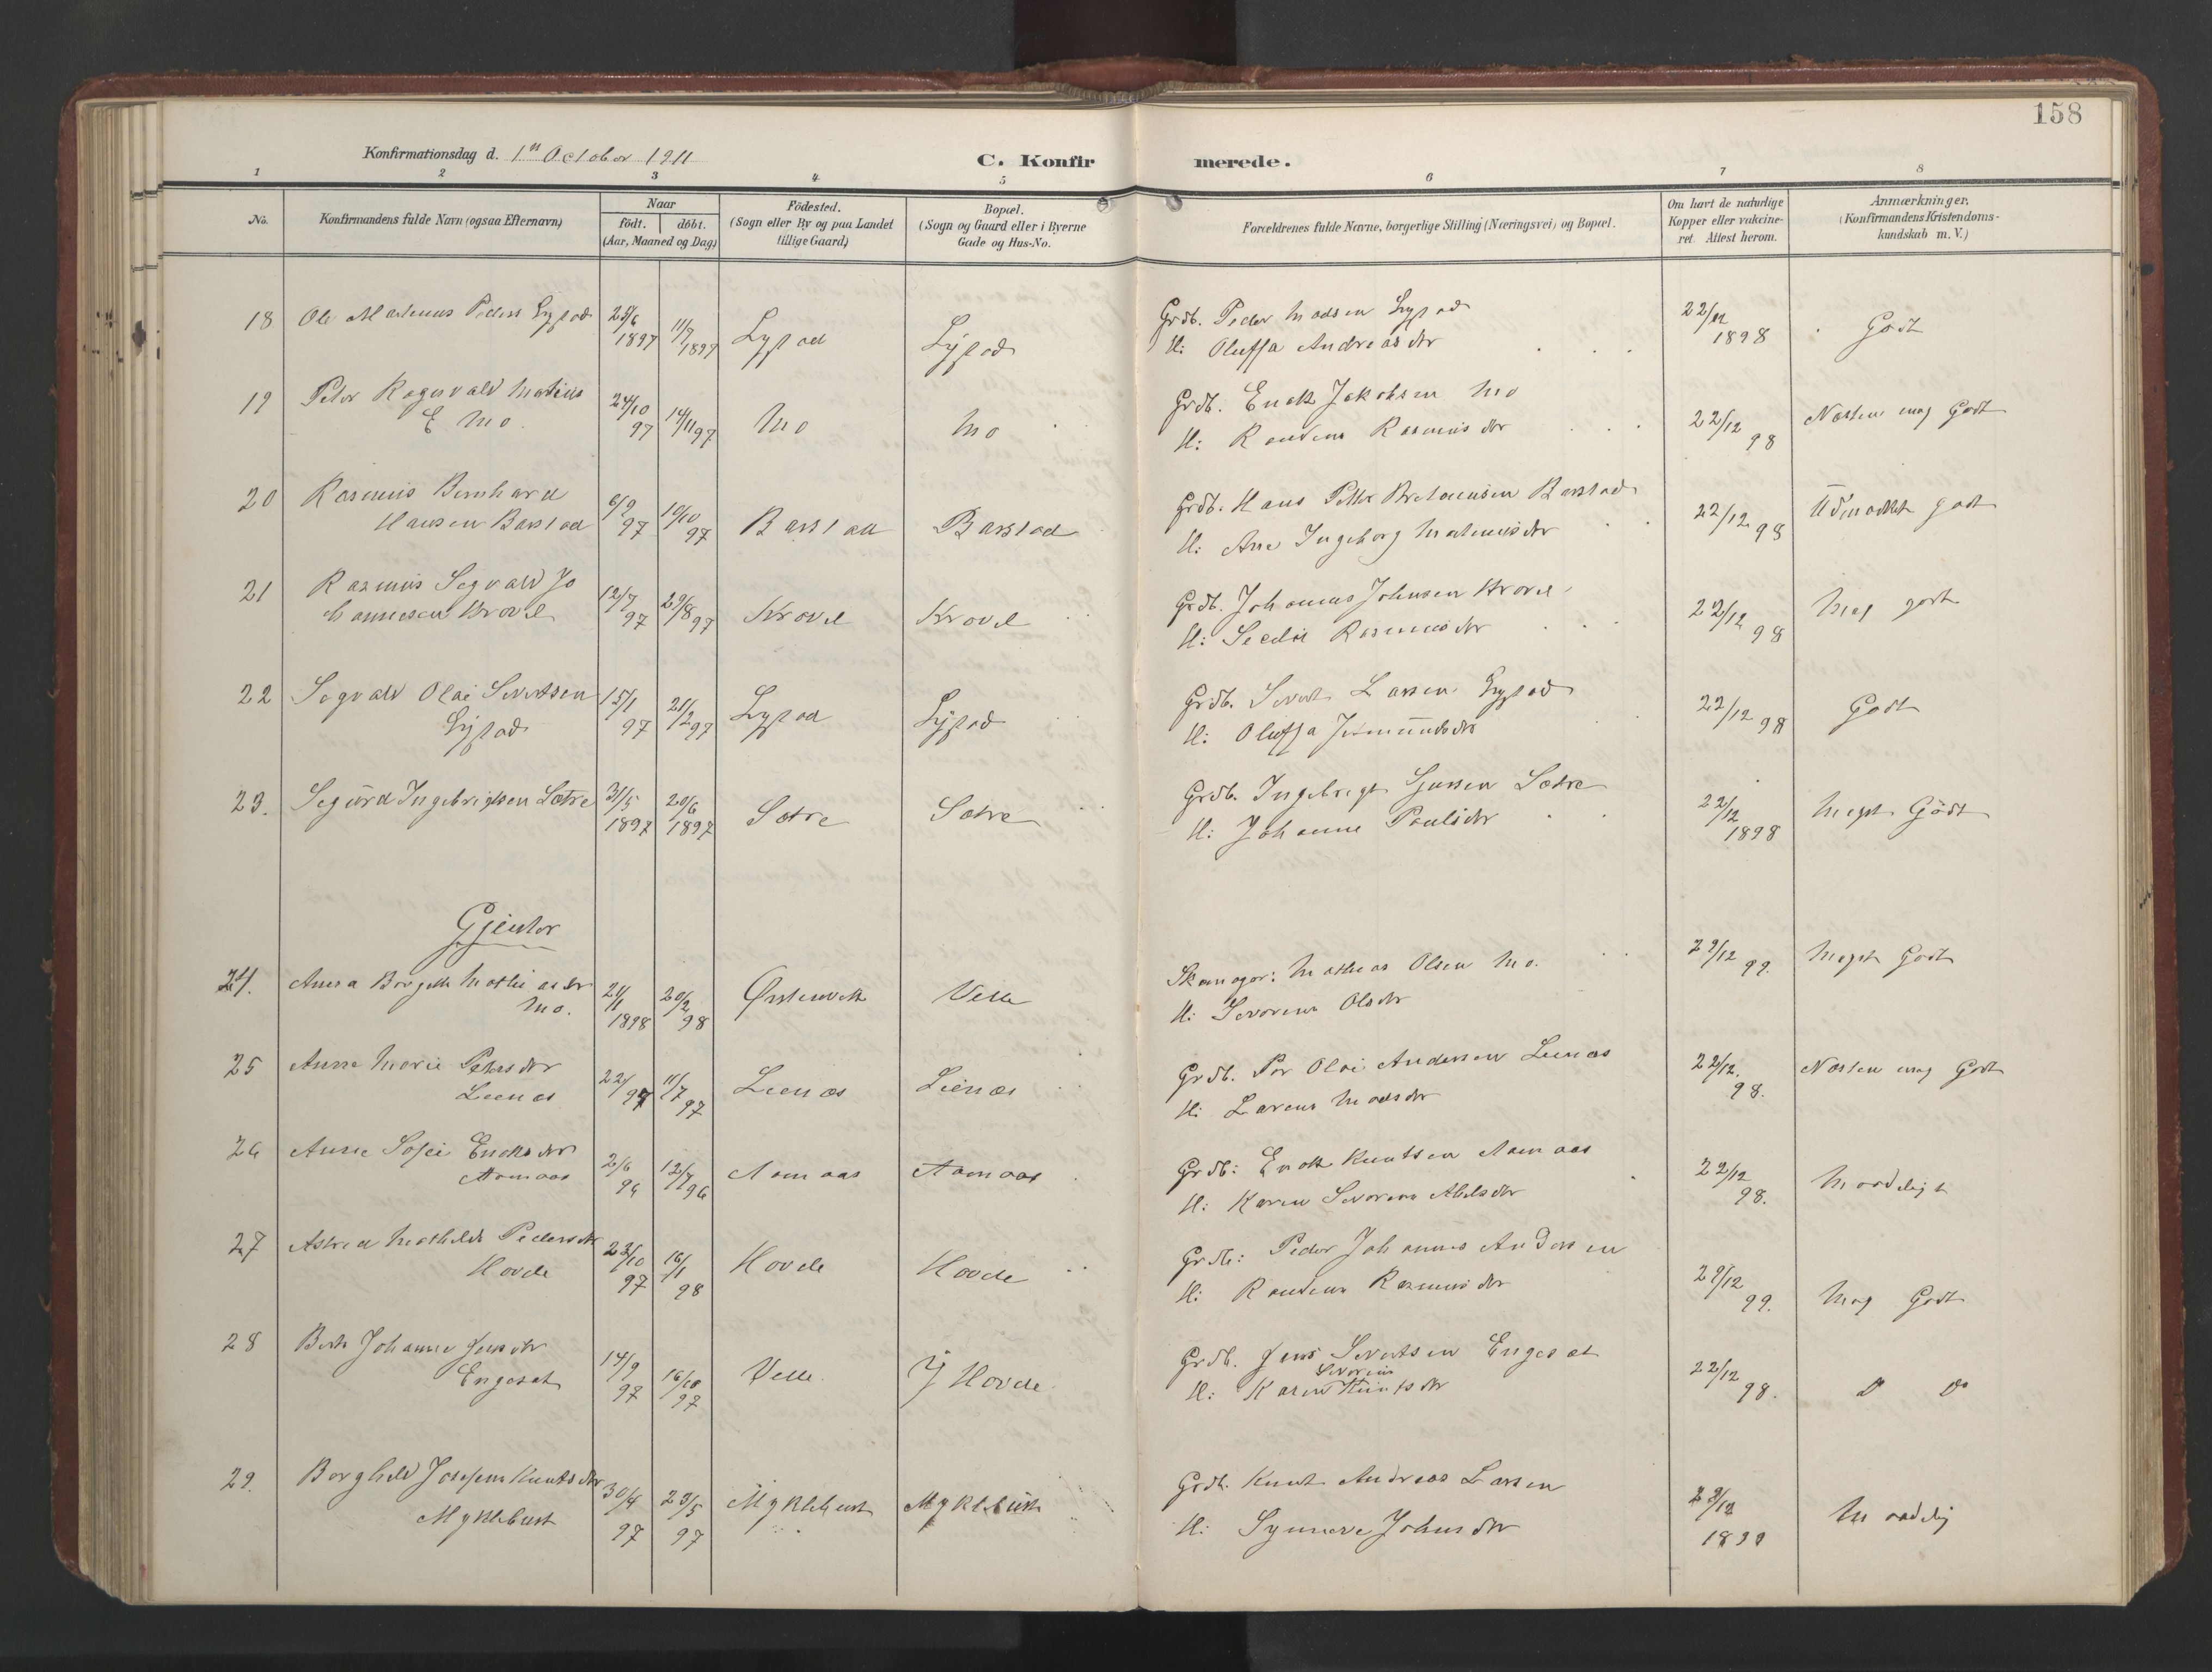 158
Konfirmationsdag d. 1ste October 1911
C. Konfirmerede.
1 2 3 4 5 6 7 8
No.
Konfirmandens fulde Navn (ogsaa Efternavn)
Naar
födt. döbt.
(Aar, Maaned og Dag)
Födested.
(Sogn eller By og paa Landet
tillige Gaard)
Bopæl.
(Sogn og Gaard eller i Byerne
Gade og Hus-No.
Forældrenes fulde Navne, borgerlige Stilling (Næringsvei) og Bopæl.
Om havt de naturlige
Kopper eller vakcine-
ret. Attest herom.
Anmærkninger.
(Konfirmandens Kristendoms-
kundskab m. V.)
18 Ole Martinus Peders 1897 11/7 1897 Grdb. Peder Madsen
H: Oluffa Andreasdtr 22/12 1898 Godt
19 Peter Ragnvald
E Mo. 24/10 97 14/11 97 Mo Mo Grdb. Enok Jakobsen Mo
H: Randina Rasmusdtr 22/12 98 Næsten meg Godt
20 Rasmus Bernhard
Hansen Barstad 6/9 97 10/10 97 Barstad Barstad Grdb. Hans Petter Barstad
H: Ane Ingeborg Martinusdtr 22/12 98 Udmærket godt
21 Rasmus Sigvald Jo
hannessen Krøvel 12/7 97 29/8 97 Krøvel Krøvel Grdb. Johannes Johnsen Krøvel
H: Rasmusdtr 22/12 98 Meg godt
22 Sigvald Olai Sivertsen
15/1 97 21/2 97 Grdb. Sivert Larsen
H: Oluffa 22/12 98 Godt
23. Sigurd Ingebrigtsen Sætre 31/5 1897 20/6 1897 Sætre Sætre Grdb. Ingebrigt Sætre
H: Johanne Paulsdtr 22/12 1898 Meget Godt
Gjenter
24. Anna Mathiasdtr
Mo. 1898 20/2 98 Ørstenvik Velle Skomager: Mathias Olsen Mo.
H: Severine Olsdtr 22/12 99. Meget Godt
25 Anne Marie Petersdtr
97 11/7 97 Grdb. Per Olai Andersen
H: Larine Madsdtr 22/12. 98. Næsten meg Godt
26 Anne Sofie Enoksdtr
Aamaas 2/6 96 12/7 96 Aamaas Aamaas Grdb: Enok Knutsen Aamaas
H: Karen Severine Abelsdtr 22/12 98. Maadeligt
27 Astrid Mathilde Pedersdtr
Hovde 23/10 97 16/1 98 Hovde Hovde Grdb: Peder Johannes Andersen
H: Randina Rasmusdtr 29/12 99. Meg Godt
28 Berte Johanne Jensdtr
Engeset 14/9 97 16/10 97 Velle. Y Hovde Grdb. Jens Sivertsen Engeset
Severine
H: Karen Knutsdtr 22/12 98. Do Do
29. Borghild Josefine Knutsdtr
Myklebust 30/4 97 23/5 97 Myklebust Myklebust Grdb. Knut Andreas Larsen
H: Synneve Johnsdtr 1899 Maadelig